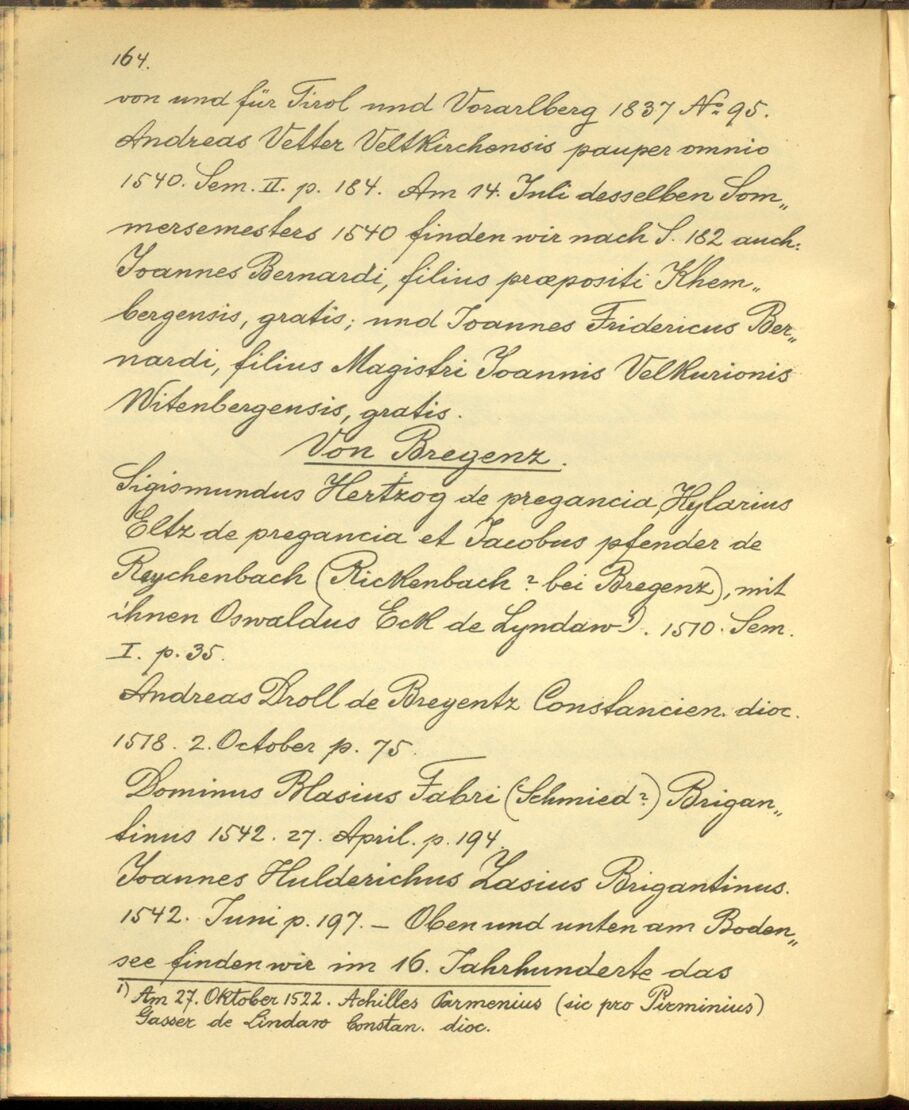 164.
von und für Tirol und Vorarlberg 1837 No 95.
Andreas Vetter Veltkirchensis pauper omnio
1540. Sem. II. p. 184. Am 14. Juli desselben Som„
mersemesters 1540 finden wir nach S. 182 auch:
Joannes Bernardi, filius præpositi Khem„
bergensis, gratis; und Joannes Fridericus Ber„
nardi, filius Magistri Joannis Velkurionis
Witenbergensis, gratis.
Von Bregenz.
Sigismundus Hertzog de pregancia, Hylarius
Eltz de pregancia et Jacobus pfender de
Reychenbach (Rickenbach? bei Bregenz), mit
ihnen Oswaldus Eck de Lyndaw 1). 1510. Sem.
I. p. 35.
Andreas Droll de Bregentz Constancien. dioc.
1518. 2. October p. 75.
Dominus Blasius Fabri (Schmied?) Brigan„
tinus 1542. 27. April. p. 194.
Joannes Huldericus Zasius Brigantinus.
1542. Juni p. 197. – Oben und unten am Boden„
see finden wir im 16. Jahrhunderte das
1) Am 27. Oktober 1522. Achilles Parmenius (sic pro Pirminius)
Gasser de Lindaw Constan. dioc.